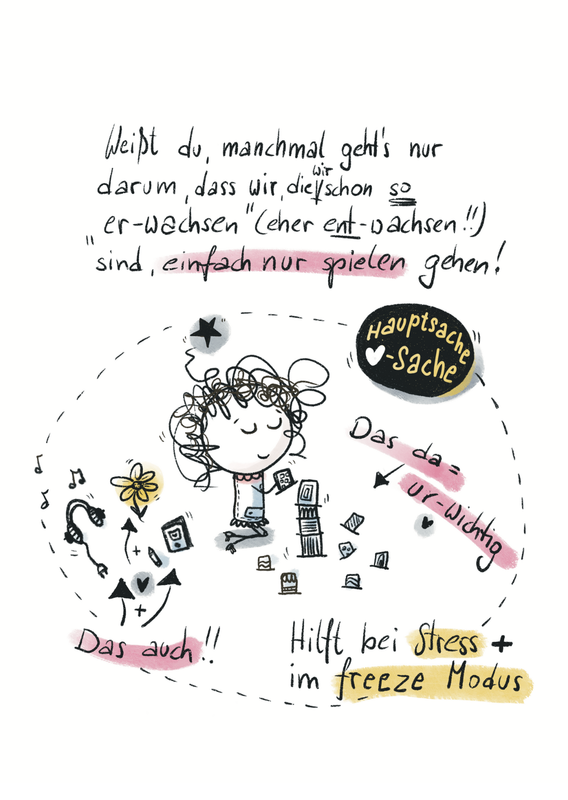 Weißt du, manchmal geht's nur
darum, dass wir, die wir schon so
er-wachsen" (eher ent-wachsen!!)
"sind, einfach nur spielen gehen!
Hauptsache
♥-Sache
Das da =
ur-wichtig
+
+
Das auch!!
Hilft bei Stress +
im freeze Modus